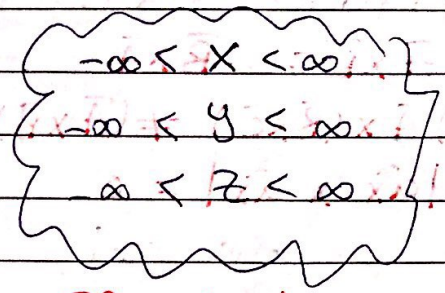 -∞ < x < ∞
-∞ < y < ∞
-∞ < z < ∞